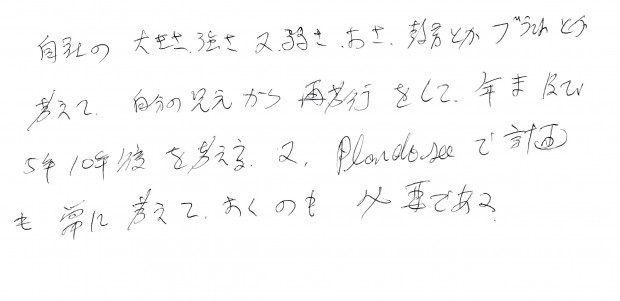 自社の 大きさ、強さ 又 弱さ、 教育とか ブランドとか
考えて、 自分の足元から 再 をして、 年 及び
5年10年後 を考える、 又、 Plan do see で 計画
も 常に 考えて、おくのも 必要である